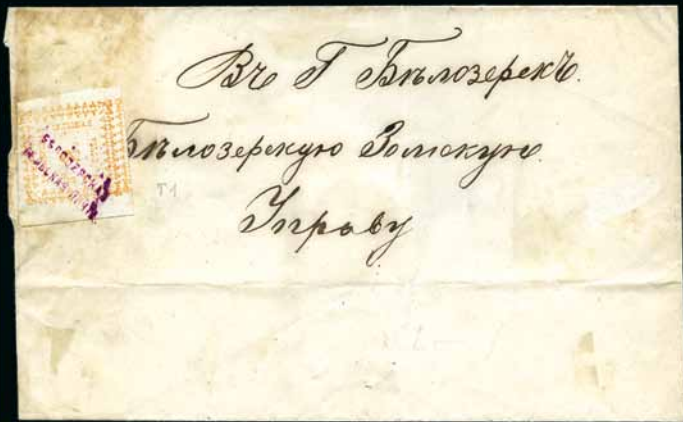 Въ Г Бѣлозерскъ.
Бѣлозерскую Земскую
Управу
БѢЛОЗЕРСКАЯ
T1